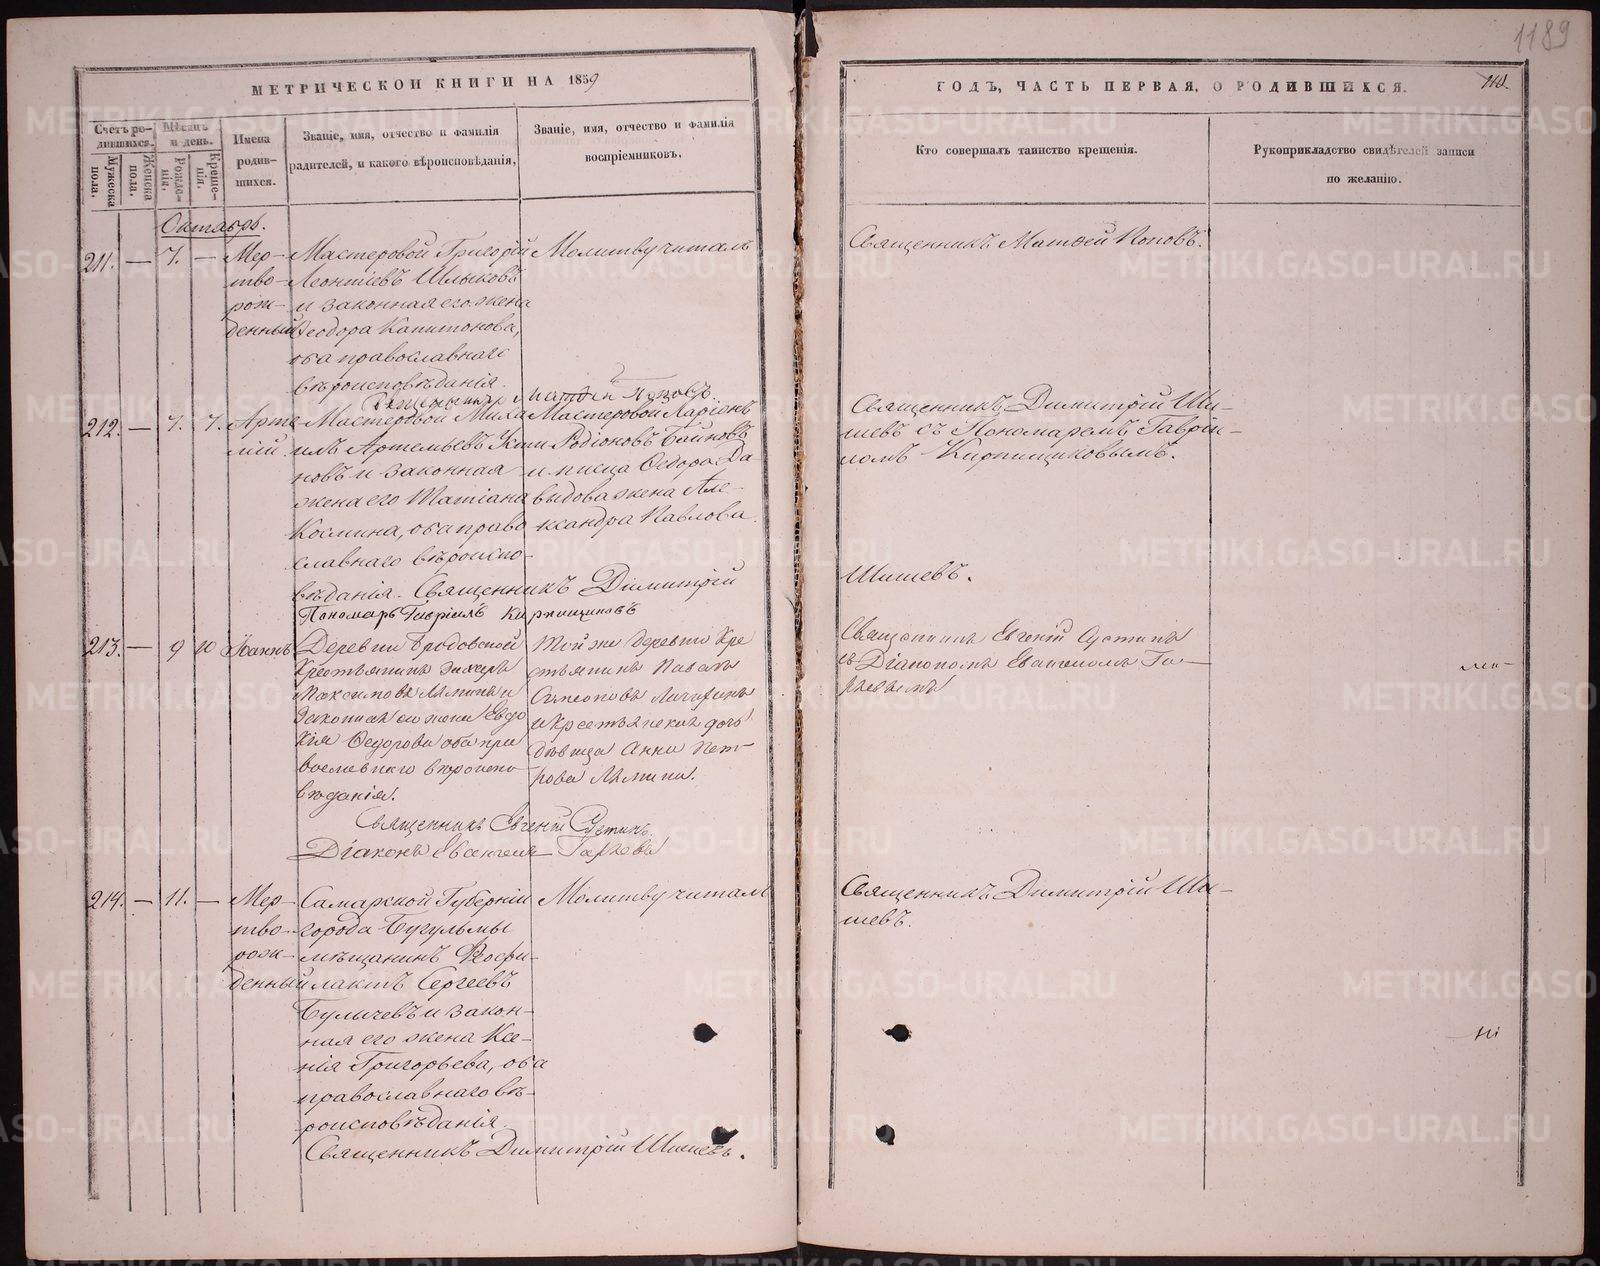 1189
МЕТРИЧЕСКОЙ КНИГИ НА 1859
ГОДЪ, ЧАСТЬ ПЕРВАЯ, О РОДИВШИХСЯ.
Счетъ ро-
дившихся.
Мужеска
пола.
Женска
пола.
Мѣсяцъ
и день.
Рожде-
нія.
Креще-
нія.
Имена
родив-
шихся.
Званіе, имя, отчество и фамилія
родителей, и какого вѣроисповѣданія,
Званіе, имя, отчество и фамилія
воспріемниковъ.
Кто совершалъ таинство крещенія.
Рукоприкладство свидѣтелей записи
по желанію.
Октябрь.
211. — 7. — Мер-
тво-
рож-
денный
Мастеровой Григорій
Леонтіевъ Шлыковъ
и законная его жена
Ѳеодора Капитонова,
оба православнаго
вѣроисповѣданія.
Молитву читалъ
Священникъ Матѳей Поповъ.
Священникъ Матѳей Поповъ.
212. — 7. 7. Арте-
мій.
Мастеровой Миха-
илъ Артемьевъ Усти-
новъ и законная
жена его Татіана
Космина, оба право-
славнаго вѣроиспо-
вѣданія. Священникъ Димитрій
Пономарь Гавріилъ Кирпищиковъ
Мастеровой Ларіонъ
Родіоновъ Байновъ
и писца Ѳедора Да-
выдова жена Але-
ксандра Павлова.
Священникъ Димитрій Ши-
шевъ съ Пономаремъ Гаврі-
иломъ Кирпищиковымъ.
Шишевъ.
213. — 9 10 Іоаннъ
Деревни Бродовской
Крестьянинъ
Максимовъ Ляминъ и
Законная его жена Евдо
кія Ѳедорова оба пра
вославнаго вѣроиспо
вѣданія.
Той же деревни Кре
стьянинъ Павелъ
Симеоновъ
и Крестьянская дочь
дѣвица Анна Пет-
рова Лямина.
Священникъ Евгеній
Діаконъ Евангелъ
Священникъ Евгеній
съ Діакономъ Евангеломъ
214. — 11. — Мер-
тво-
рож-
денный
Самарской Губерніи
города Бугульмы
мѣщанинъ Ѳеофи-
лактъ Сергеевъ
Буличевъ и закон-
ная его жена Ксе-
нія Григорьева, оба
православнаго вѣ-
роисповѣданія.
Священникъ Димитрій Шишевъ.
Молитву читалъ
Священникъ Димитрій Ши-
шевъ.
METRIKI.GASO-URAL.RU